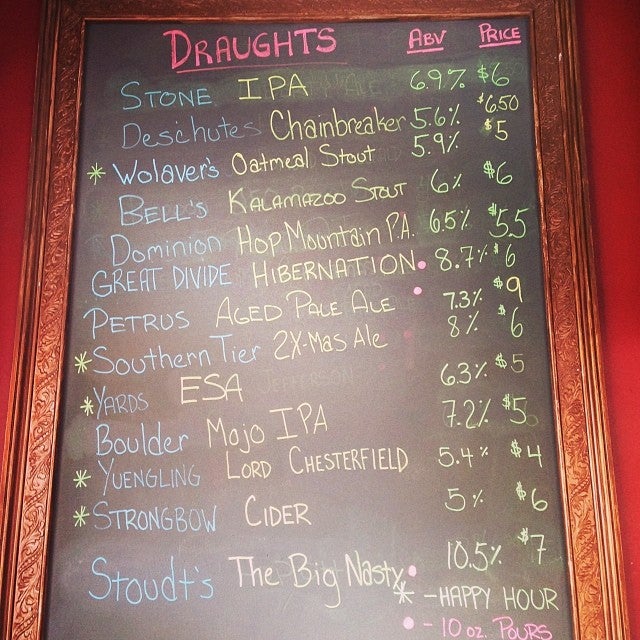 DRAUGHTS ABV PRICE
STONE IPA 6.9% $6
Deschutes Chainbreaker 5.6% $6.50
* Wolaver's Oatmeal Stout 5.9% $5
BELL'S KALAMAZOO STOUT 6% $6
Dominion Hop Mountain P.A. 6.5% $5.5
GREAT DIVIDE HIBERNATION • 8.7% $6
PETRUS AGED PALE ALE • 7.3% $9
* Southern Tier 2X-Mas Ale 8% $6
* YARDS ESA 6.3% $5
Boulder Mojo IPA 7.2% $5
* YUENGLING LORD CHESTERFIELD 5.4% $4
* STRONGBOW CIDER 5% $6
Stoudt's The Big Nasty • 10.5% $7
* - HAPPY HOUR
• - 10 oz. POURS